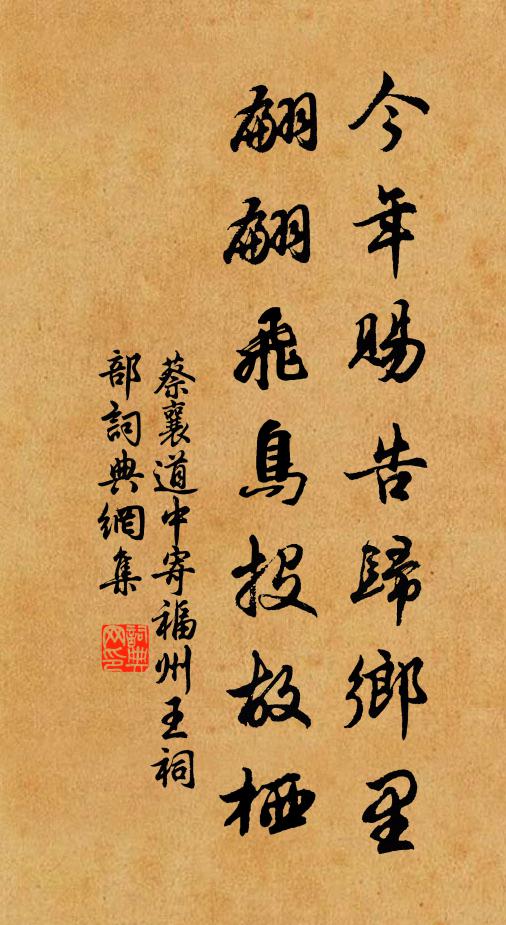 今年賜告歸鄉里
翩翩飛鳥投故栖
蔡襄道中寄福州王祠
部詞典網集
詞典
网印